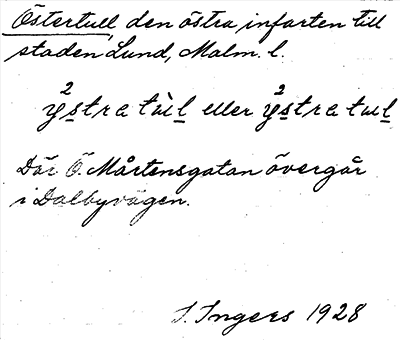 Östertull den östra infarten till
staden Lund, Malm. l.
ÿ²stra tùl eller ÿ²stra tul
Där Ö. Mårtensgatan övergår
i Dalbyvägen.
I. Ingers 1928